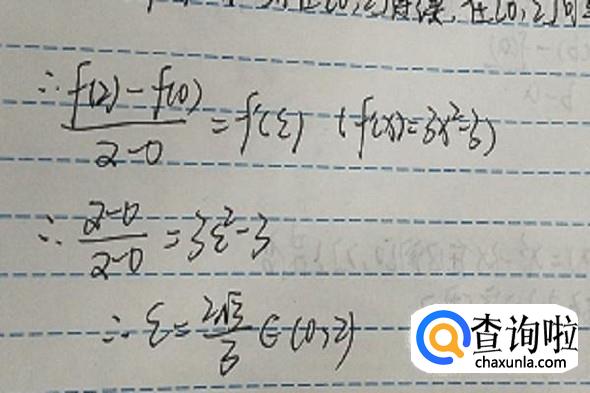 在[0,2]连续,在(0,2)可导
∴ f(2)-f(0) / 2-0 = f'(ξ) (f'(x)=3x²-3)
∴ 2-0 / 2-0 = 3ξ²-3
∴ ξ = 2√3 / 3 ∈ (0,2)
查询啦
chaxunla.com